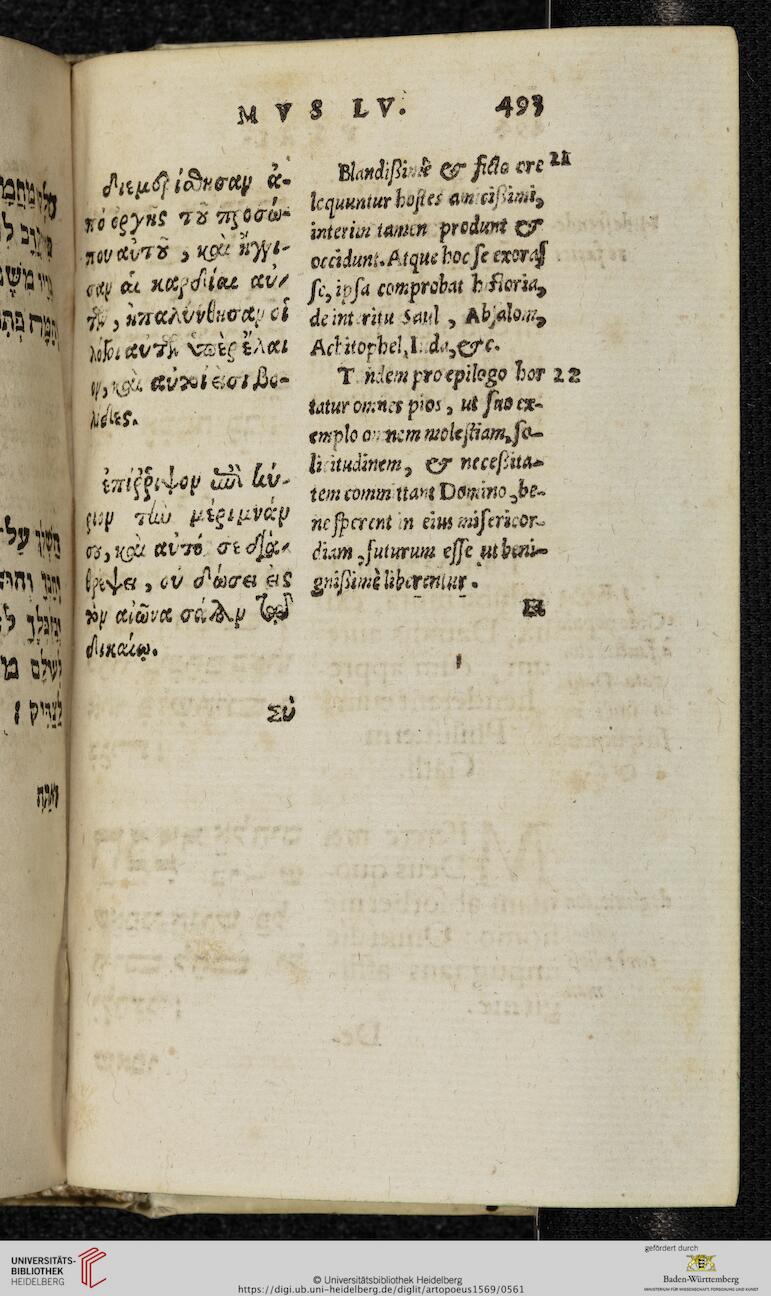 MVS LV. 493
διεμερίσθησαν ἀ-
πὸ ὀργῆς τοῦ προσώ-
που αὐτοῦ, καὶ ἤγγι-
σαν αἱ καρδίαι αὐ-
τῶν, ἡπαλύνθησαν οἱ
λόγοι αὐτῶν ὑπὲρ ἔλαι
ον, καὶ αὐτοί εἰσι βο-
λίδες.
ἐπίρριψον ἐπὶ κύ-
ριον τὴν μέριμνάν
σου, καὶ αὐτός σε δια-
θρέψει, οὐ δώσει εἰς
τὸν αἰῶνα σάλον τῷ
δικαίῳ.
Σὺ
Blandißimè & ficto ore 21
lequuntur hostes amicißimi,
interim tamen produnt &
occidunt. Atque hoc se exoras
se, ipsa comprobat historia,
de interitu Saul, Absalom,
Achitophel, Iuda, &c.
Tandem pro epilogo hor 22
tatur omnes pios, ut suo ex-
emplo omnem molestiam, so-
licitudinem, & neceßita-
tem committant Domino, be-
ne sperent in eius misericor-
diam, futurum esse ut beni-
gnißimè liberentur.
UNIVERSITÄTS-
BIBLIOTHEK
HEIDELBERG
© Universitätsbibliothek Heidelberg
https://digi.ub.uni-heidelberg.de/diglit/artopoeus1569/0561
gefördert durch
Baden-Württemberg
MINISTERIUM FÜR WISSENSCHAFT, FORSCHUNG UND KUNST